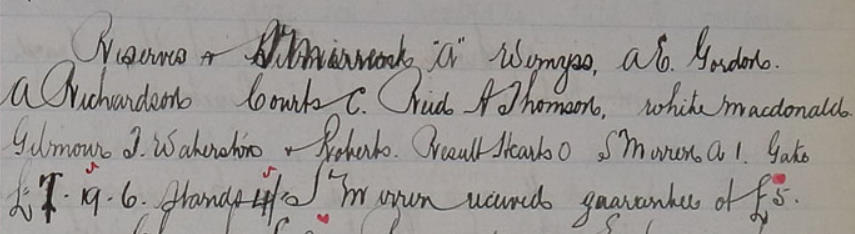 Reserves v St Mirren "A" Wemyss, A E. Gordon.
A Richardson Courts C. Reid A Thomson, White Macdonald
Gilmour J. Waterston & Roberts. Result Hearts 0 St Mirren A 1. Gate
£7. 19. 6. Stands 4/- St Mirren received guarantee of £5.